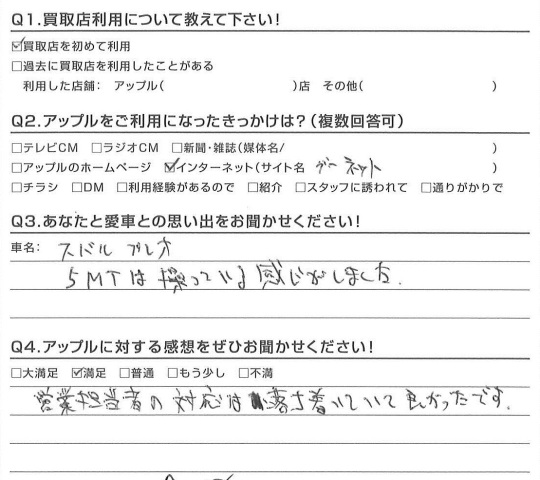 Q1.買取店利用について教えて下さい!
☑買取店を初めて利用
□過去に買取店を利用したことがある
利用した店舗: アップル( )店 その他( )
Q2.アップルをご利用になったきっかけは?(複数回答可)
□テレビCM □ラジオCM □新聞・雑誌(媒体名/ )
□アップルのホームページ ☑インターネット(サイト名 グーネット )
□チラシ □DM □利用経験があるので □紹介 □スタッフに誘われて □通りがかりで
Q3.あなたと愛車との思い出をお聞かせください!
車名: スバル プレオ
5MTは操っている感じがしました.
Q4.アップルに対する感想をぜひお聞かせください!
□大満足 ☑満足 □普通 □もう少し □不満
営業担当者の対応は落ち着いていて良かったです.